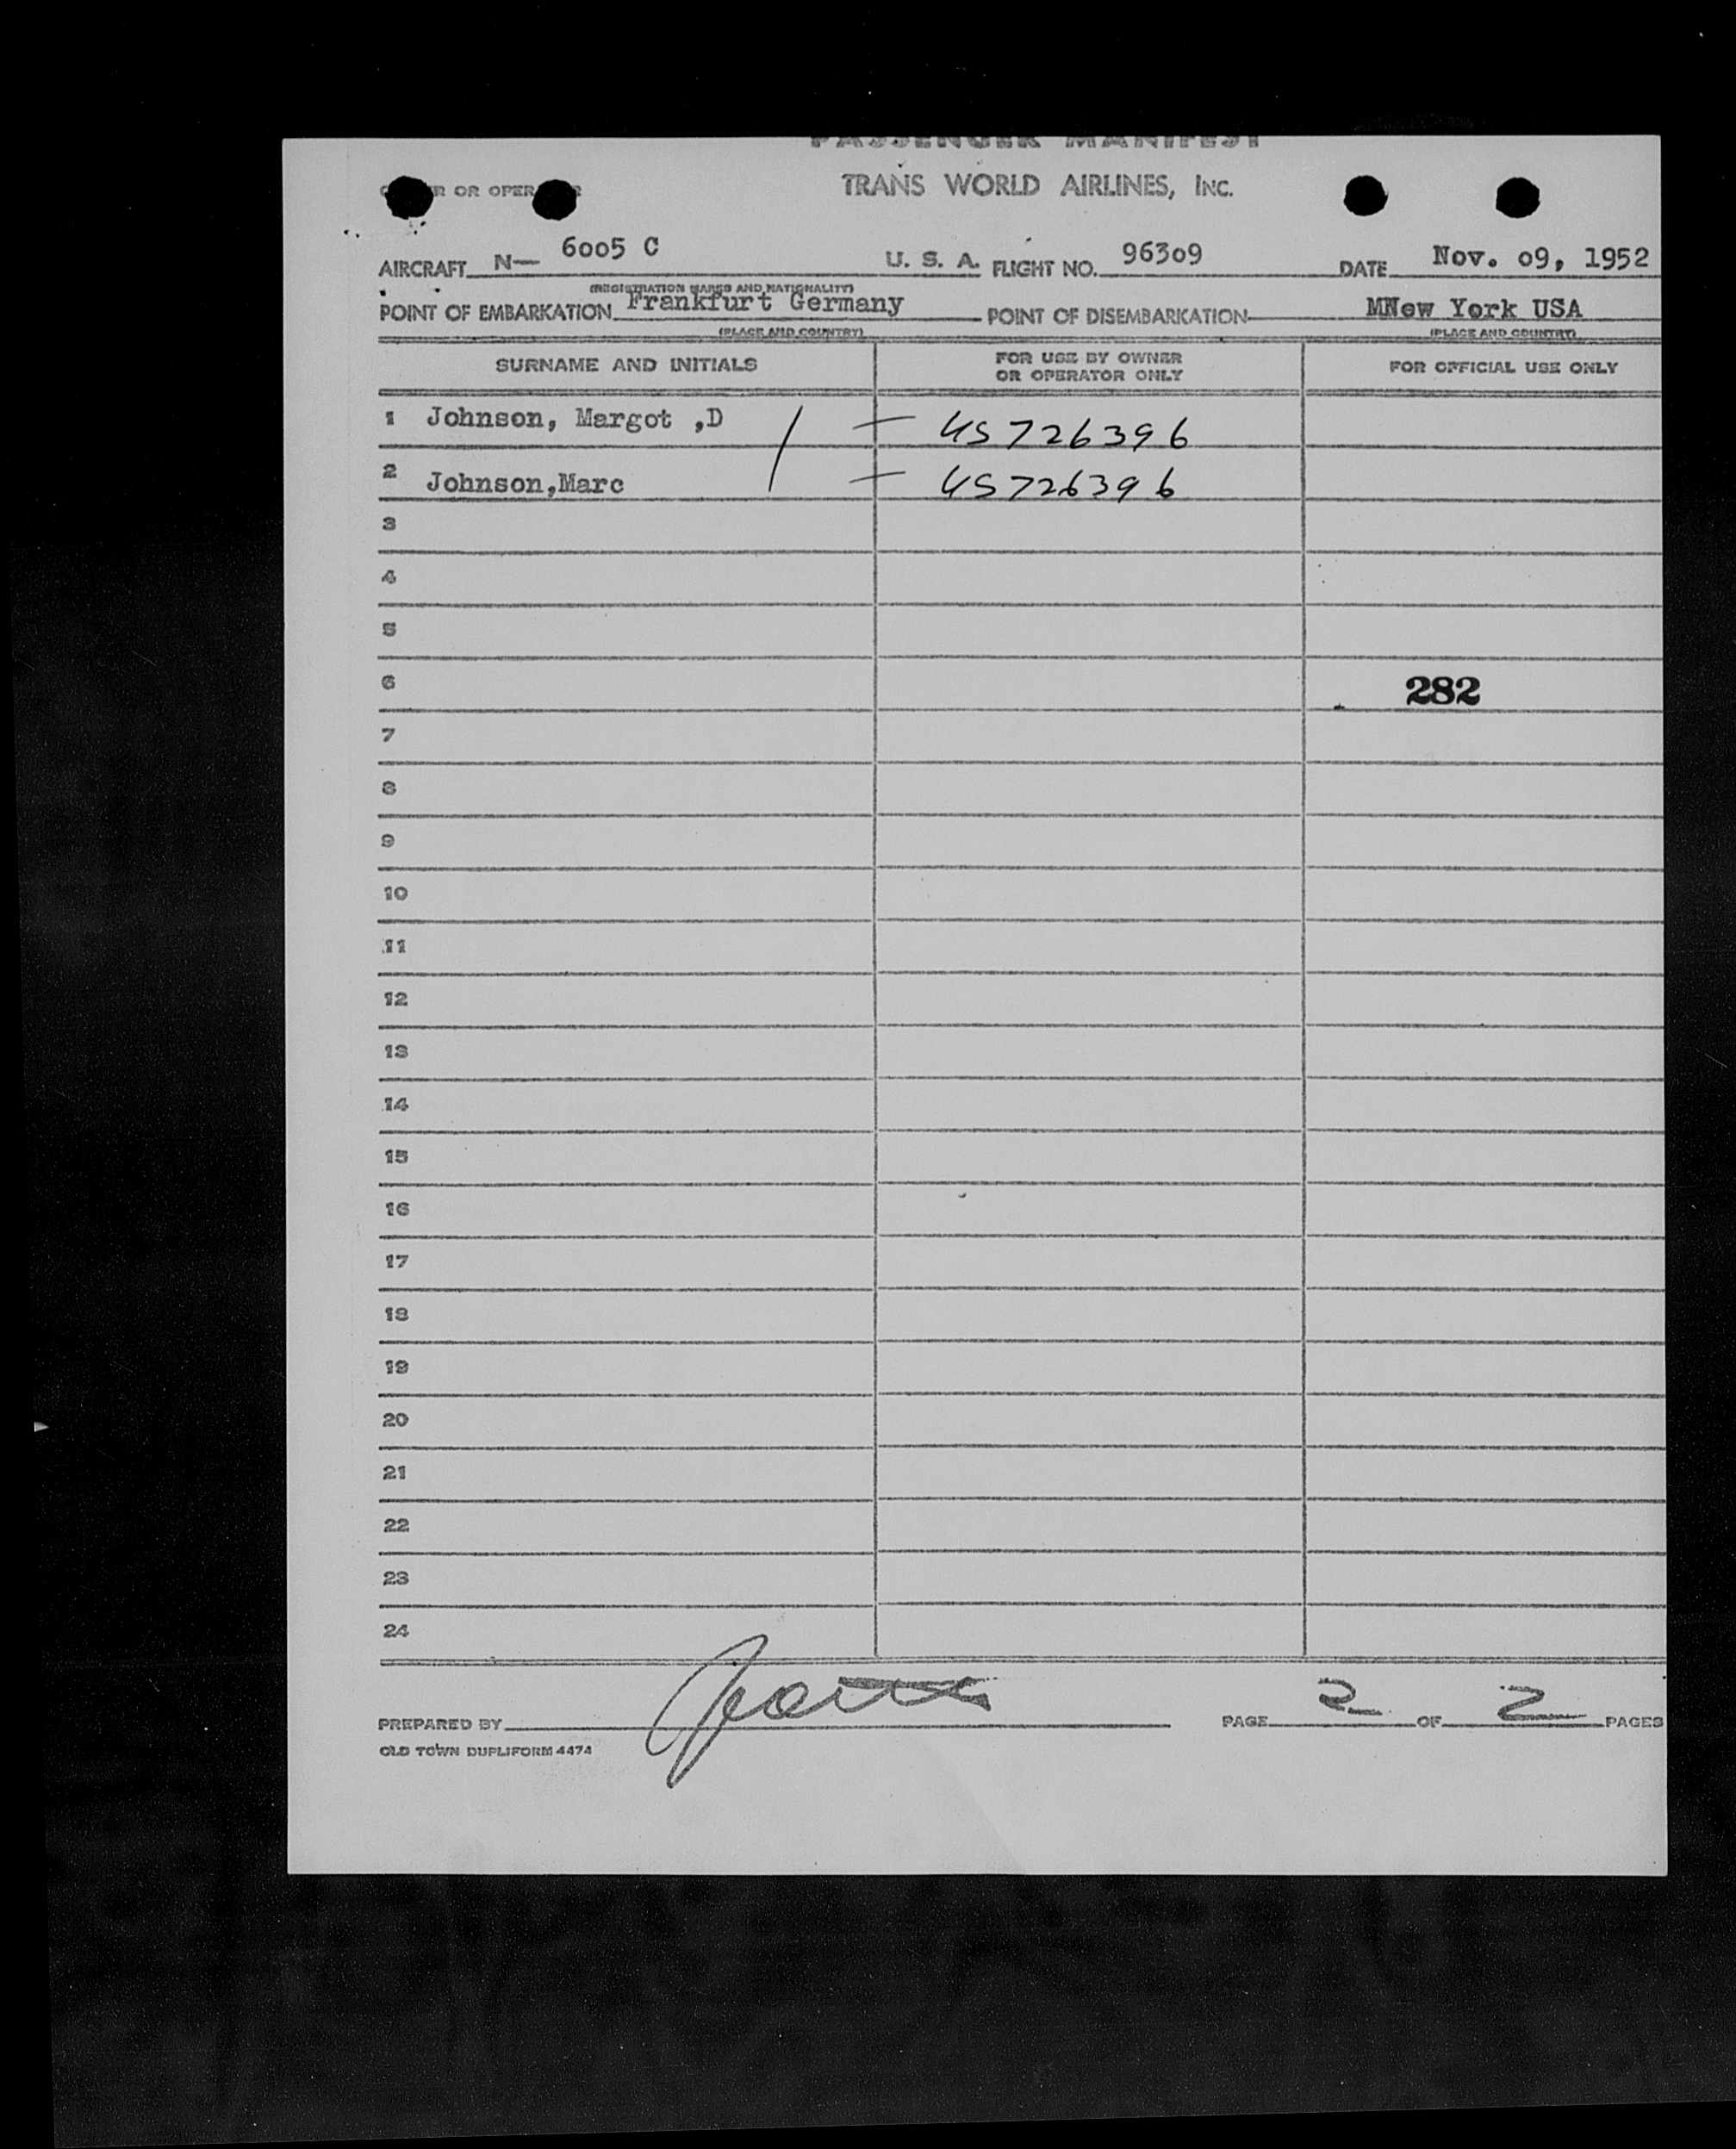 PASSENGER MANIFEST
OR OPER
TRANS WORLD AIRLINES, INC.
AIRCRAFT N— 6005 C U. S. A. FLIGHT NO. 96309 DATE Nov. 09, 1952
(REGISTRATION MARKS AND NATIONALITY)
POINT OF EMBARKATION Frankfurt Germany POINT OF DISEMBARKATION MNew York USA
(PLACE AND COUNTRY) (PLACE AND COUNTRY)
SURNAME AND INITIALS FOR USE BY OWNER OR OPERATOR ONLY FOR OFFICIAL USE ONLY
1 Johnson, Margot ,D — US726396
2 Johnson,Marc — US726396
3
4
5
6 282
7
8
9
10
11
12
13
14
15
16
17
18
19
20
21
22
23
24
PREPARED BY PAGE 2 OF 2 PAGES
OLD TOWN DUPLIFORM 4474